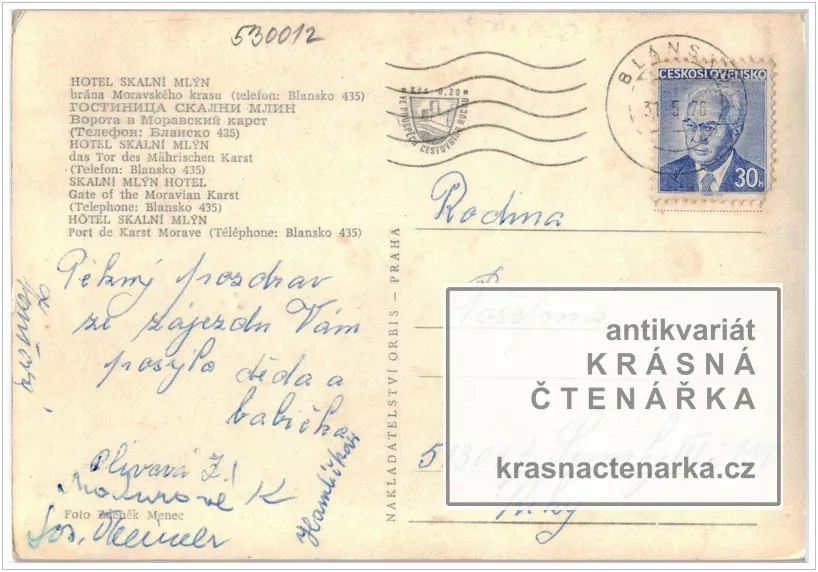 530012
HOTEL SKALNÍ MLÝN
brána Moravského krasu (telefon: Blansko 435)
ГОСТИНИЦА СКАЛНИ МЛИН
Ворота в Моравский карст
(Телефон: Бланско 435)
HOTEL SKALNÍ MLÝN
das Tor des Mährischen Karst
(Telefon: Blansko 435)
SKALNÍ MLÝN HOTEL
Gate of the Moravian Karst
(Telephone: Blansko 435)
HÔTEL SKALNÍ MLÝN
Port de Karst Morave (Téléphone: Blansko 435)
Kčs 0,20
VE PROSPĚCH CESTOVNÍHO RUCHU
BLANSKO
31. 5. 76
ČESKOSLOVENSKO
30h
Rodina
Josefína
Pěkný pozdrav
ze zájezdu Vám
posýlá děda a
babička
Plívová Z.
K
Jos.
Foto Zdeněk Menec
NAKLADATELSTVÍ ORBIS — PRAHA
antikvariát
KRÁSNÁ
ČTENÁŘKA
krasnactenarka.cz